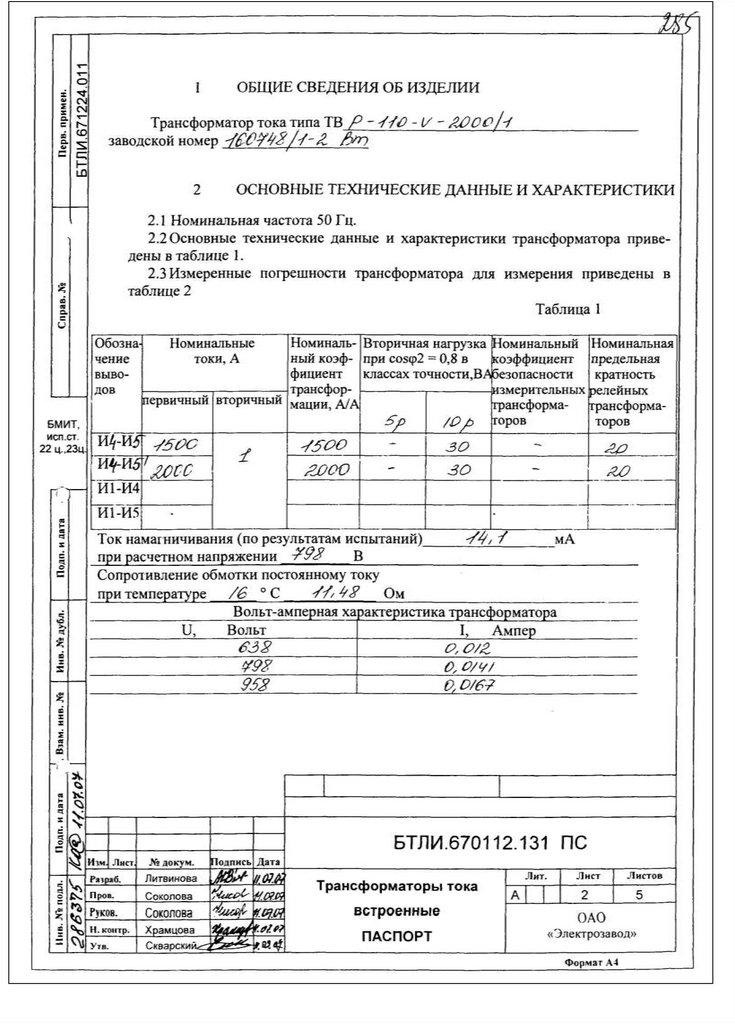 285
Перв. примен.
БТЛИ.671224.011
Справ. №
БМИТ,
исп.ст.
22 ц.,23ц.
Подп. и дата
Инв. № дубл.
Взам. инв. №
Подп. и дата
11.07.07
Инв. № подл.
286375
1 ОБЩИЕ СВЕДЕНИЯ ОБ ИЗДЕЛИИ
Трансформатор тока типа ТВ Р-110-V-2000/1
заводской номер 160748/1-2 Вт
2 ОСНОВНЫЕ ТЕХНИЧЕСКИЕ ДАННЫЕ И ХАРАКТЕРИСТИКИ
2.1 Номинальная частота 50 Гц.
2.2 Основные технические данные и характеристики трансформатора приве-
дены в таблице 1.
2.3 Измеренные погрешности трансформатора для измерения приведены в
таблице 2
Таблица 1
Обозна-
чение
выво-
дов
Номинальные
токи, А
первичный вторичный
Номиналь-
ный коэф-
фициент
трансфор-
мации, А/А
Вторичная нагрузка
при cosφ2 = 0,8 в
классах точности,ВА
5р 10р
Номинальный
коэффициент
безопасности
измерительных
трансформа-
торов
Номинальная
предельная
кратность
релейных
трансформа-
торов
И4-И5 1500 1 1500 - 30 - 20
И4-И5' 2000 2000 - 30 - 20
И1-И4
И1-И5
Ток намагничивания (по результатам испытаний) 14,1 мА
при расчетном напряжении 798 В
Сопротивление обмотки постоянному току
при температуре 16 °С 11,48 Ом
Вольт-амперная характеристика трансформатора
U, Вольт I, Ампер
638 0,012
798 0,0141
958 0,0167
БТЛИ.670112.131 ПС
Изм. Лист. № докум. Подпись Дата
Разраб. Литвинова 11.07.07
Пров. Соколова 11.07.07
Руков. Соколова 11.07.07
Н. контр. Храмцова
Утв. Скварский
Трансформаторы тока
встроенные
ПАСПОРТ
Лит. Лист Листов
А 2 5
ОАО
«Электрозавод»
Формат А4